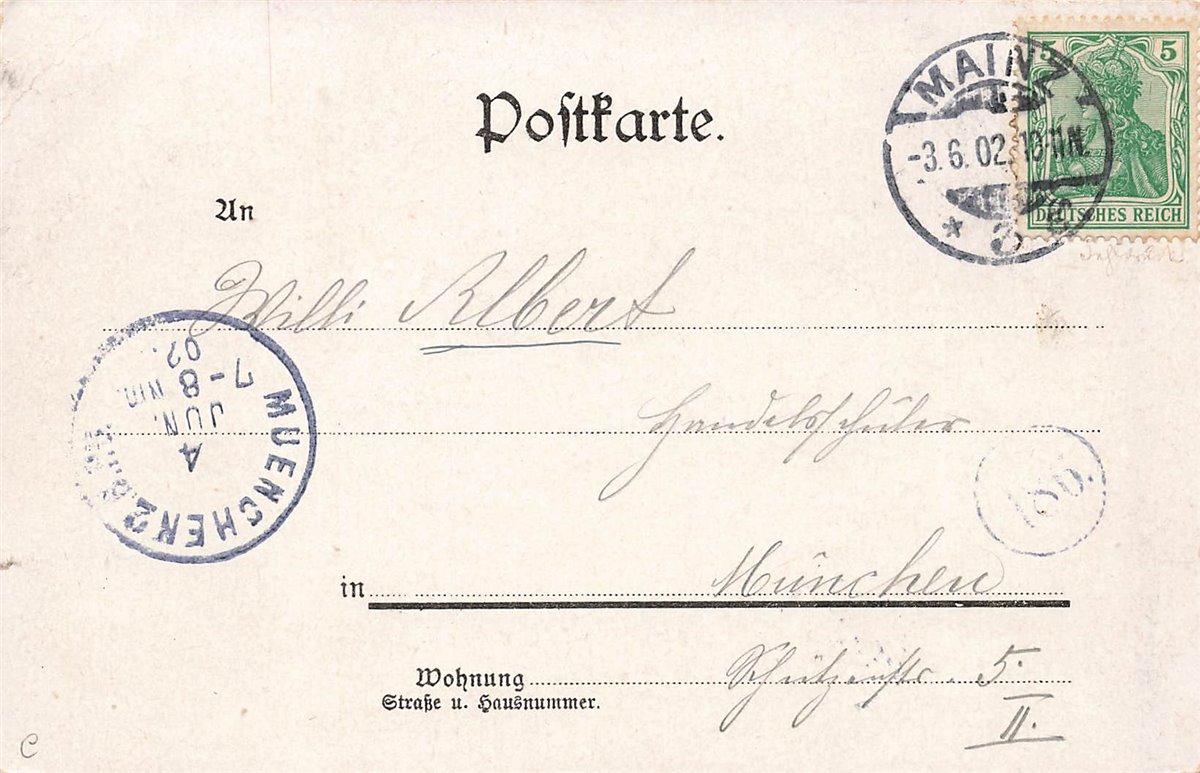 Postkarte.
5 5
DEUTSCHES REICH
MAINZ
-3.6.02. 10-11N.
* 2
An
Willi Albert
MUENCHEN 2
4
JUN.
7-8 Nm.
02.
Handelsschüler
186.
in München
Wohnung Schützenstr. 5
Straße u. Hausnummer.
II.
C